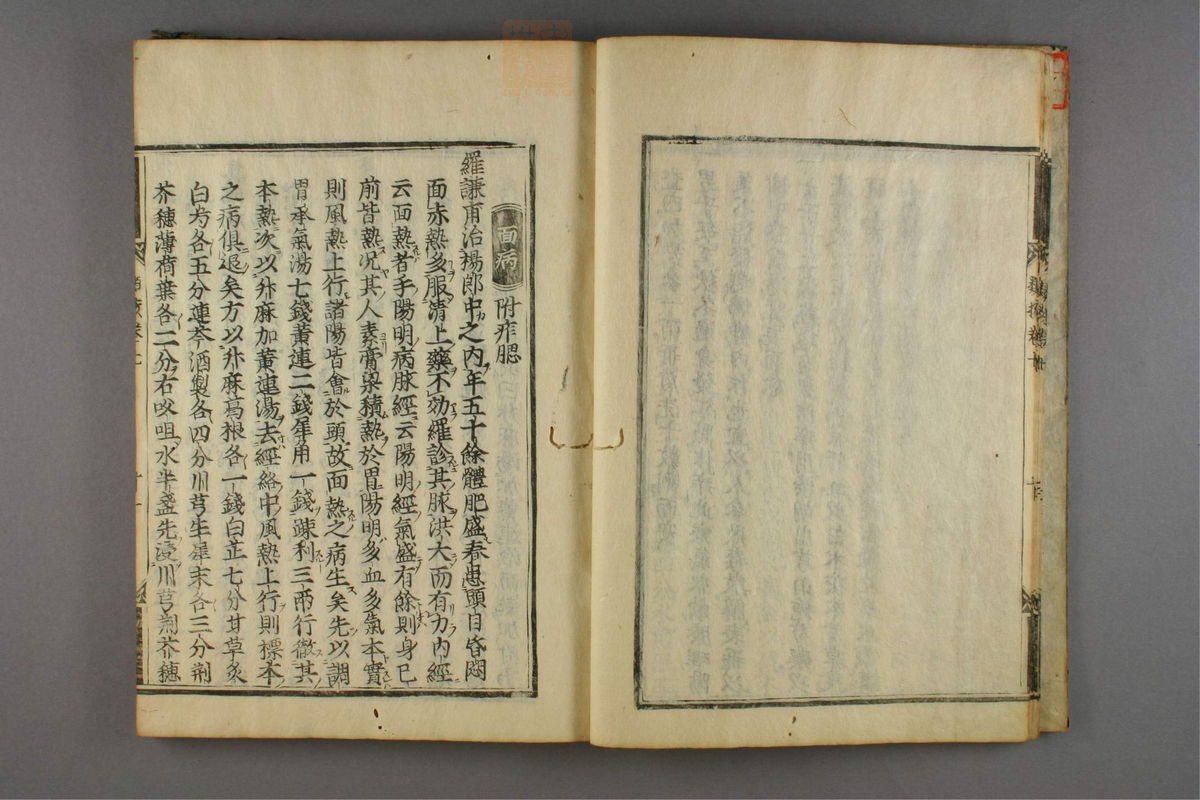 面病 附痄腮
羅謙甫治楊郎中之內年五十餘體肥盛春患頭目昏悶
面赤熱多服清上藥不効羅診其脉洪大而有力內經
云面熱者手陽明病脉經云陽明經氣盛有餘則身已
前皆熱况其人素膏梁積熱於胃陽明多血多氣本實
則風熱上行諸陽皆會於頭故面熱之病生矣先以調
胃承氣湯七錢黃連二錢犀角一錢踈利三兩行徹其
本熱次以升麻加黃連湯去經絡中風熱上行則標本
之病俱退矣方以升麻葛根各一錢白芷七分甘草炙
白芍各五分連芩酒製各四分川芎生犀末各三分荆
芥穗薄荷葉各二分右㕮咀水半盞先浸川芎荆芥穗